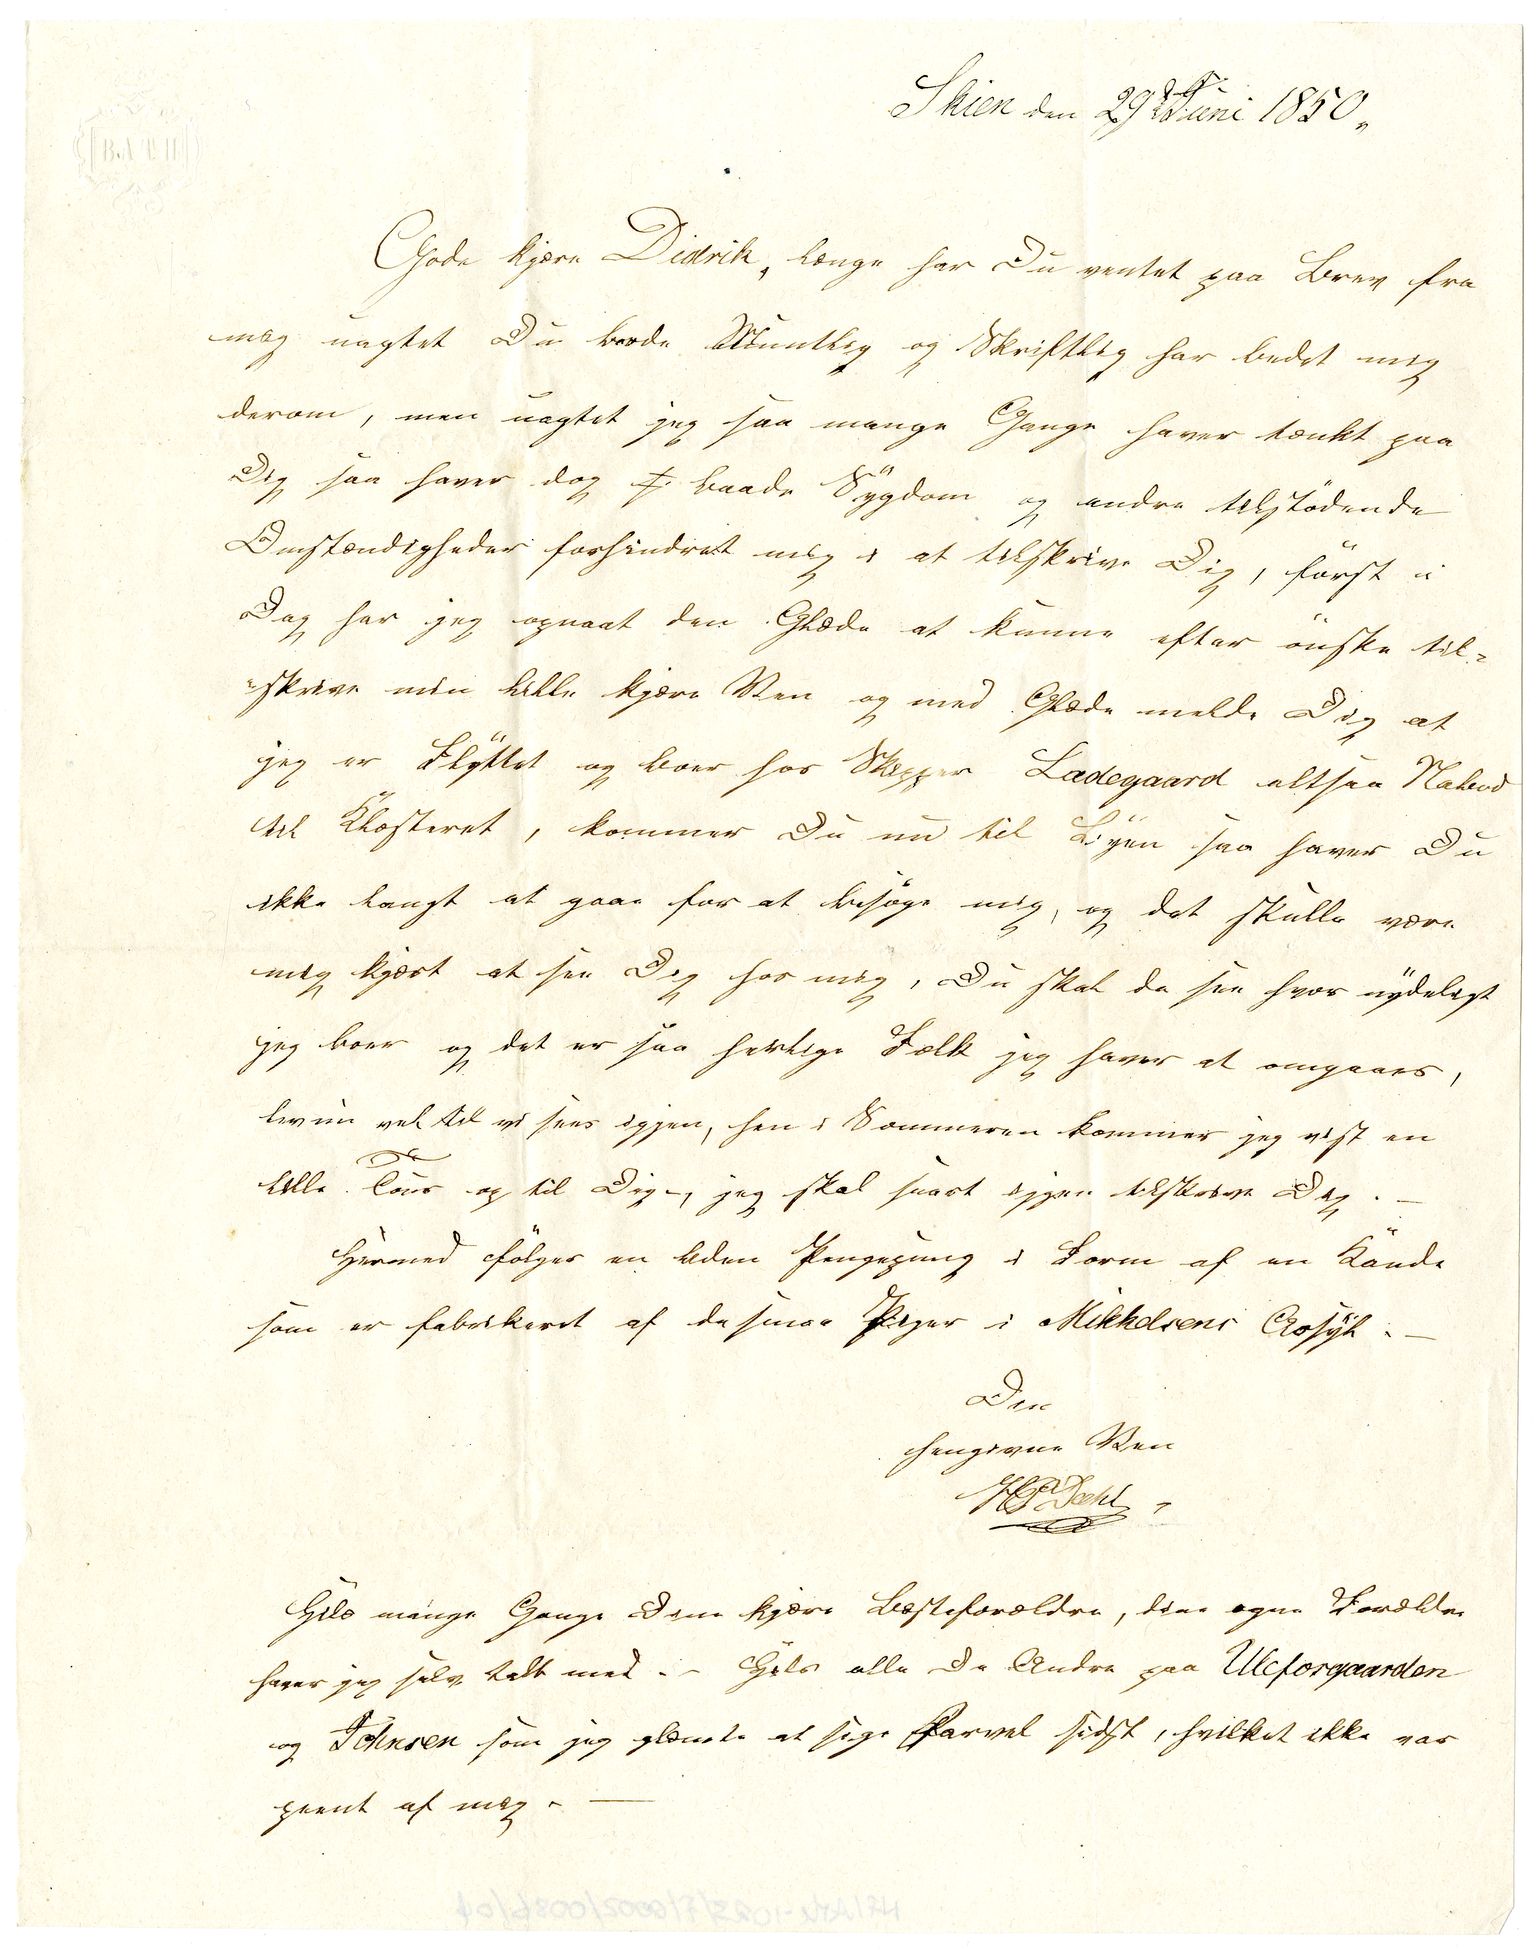 Skien den 29de Juni 1850,
Gode kjære Didrik, længe har Du ventet paa Brev fra
mig uagtet Du baade Mundtlig og Skriftlig har bedet mig
derom, men uagtet jeg saa mange Gange haver tænkt paa
Dig saa haver dog baade Sygdom og andre tilstødende
Omstændigheder forhindret mig i at tilskrive Dig, først i
Dag har jeg opnaaet den Glæde at kunne efter ønske til-
skrive min lille kjære Ven og med Glæde melde Dig at
jeg er Flyttet og boer hos Skipper Ladegaard altsaa Nabo
til Klosteret, kommer Du nu til Byen saa haver Du
ikke langt at gaae for at besøge mig, og det skulle være
mig kjært at see Dig hos mig, Du skal da see hvor nydeligt
jeg boer og det er saa herlige Folk jeg haver at omgaaes,
lev nu vel til vi sees igjen, hen i Sommeren kommer jeg vist en
lille Tour op til Dig, jeg skal snart igjen tilskrive Dig. —
Hermed følger en liden Pengepung i Form af en Kande
som er fabrikeret af de smaa Piger i Mikkelsens Asyl. —
Din
hengivne Ven
HP Dahl
Hils mange Gange Dine kjære Bæsteforældre, dine egne Forældre
haver jeg selv talt med. - Hils alle De Andre paa Ulefosgaarden
og Johnsen som jeg glemte at sige Farvel sidst, hvilket ikke var
pænt af mig. —
BATH